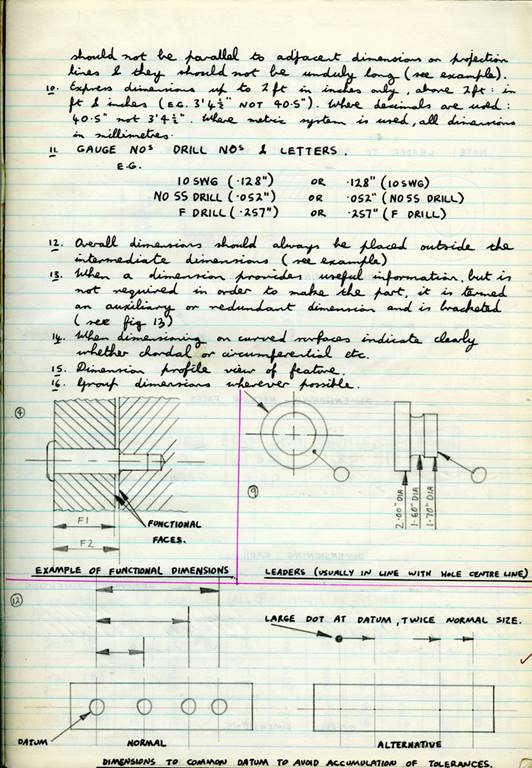 should not be parallel to adjacent dimensions or projection
lines & they should not be unduly long (see example).
10. Express dimensions up to 2 ft in inches only, above 2ft : in
ft & inches (E.G. 3' 4½" NOT 40·5"). Where decimals are used :
40·5" not 3' 4½". Where metric system is used, all dimensions
in millimetres.
11. GAUGE NOS DRILL NOS & LETTERS.
E.G.
10 SWG (·128") OR ·128" (10 SWG)
NO 55 DRILL (·052") OR ·052" (NO 55 DRILL)
F DRILL (·257") OR ·257" (F DRILL)
12. Overall dimensions should always be placed outside the
intermediate dimensions (see example)
13. When a dimension provides useful information, but is
not required in order to make the part, it is termed
an auxiliary or redundant dimension and is bracketed
(see fig 13)
14. When dimensioning on curved surfaces indicate clearly
whether chordal or circumferential etc.
15. Dimension profile view of feature.
16. Group dimensions wherever possible.
4
F1
F2
FUNCTIONAL
FACES.
EXAMPLE OF FUNCTIONAL DIMENSIONS
9
2·00" DIA
1·60" DIA
1·70" DIA
LEADERS (USUALLY IN LINE WITH HOLE CENTRE LINE)
12
LARGE DOT AT DATUM, TWICE NORMAL SIZE.
DATUM
NORMAL
ALTERNATIVE
DIMENSIONS TO COMMON DATUM TO AVOID ACCUMULATION OF TOLERANCES.